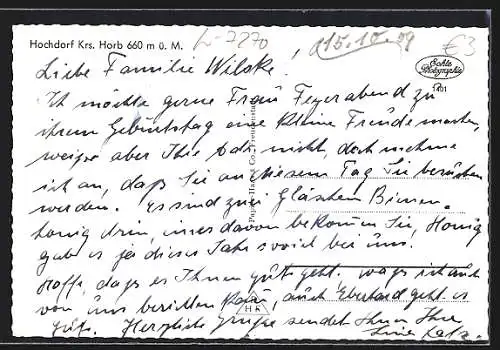 Hochdorf Krs. Horb 660 m ü. M.
L-7270
015.10.09
€3
Echte Photographie
5401
Liebe Familie Wilske!
Ich möchte gerne Frau Feyerabend zu
ihrem Geburtstag eine kleine Freude machen,
weiss aber Ihre Adr. nicht, doch nehme
ich an, daß Sie an diesem Tag Sie besuchen
werden. Es sind zwei Gläschen Bienen-
honig drin, eines davon bekommen Sie, Honig
gab es ja dieses Jahr soviel bei uns.
Hoffe, dass es Ihnen gut geht. was ich auch
von uns berichten kann, auch Eberhard geht es
gut. Herzliche Grüße sendet Ihnen Ihre
HK